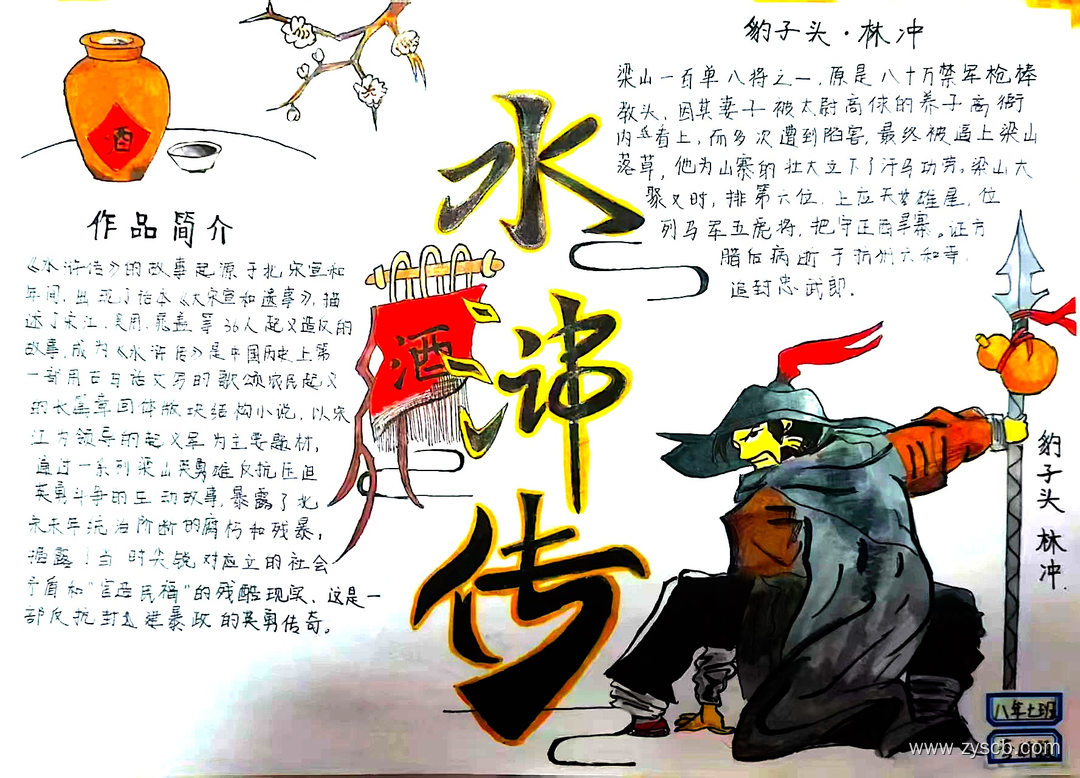 酒
水浒传
酒
作品简介
《水浒传》的故事起源于北宋宣和
年间，出现了话本《大宋宣和遗事》，描
述了宋江、吴用、晁盖等36人起义造反的
故事，成为《水浒传》是中国历史上第
一部用古白话文写的歌颂农民起义
的长篇章回体版块结构小说，以宋
江为领导的起义军为主要题材，
通过一系列梁山英勇雄反抗压迫
英勇斗争的生动故事，暴露了北
宋末年统治阶断的腐朽和残暴，
揭露了当时尖锐对应立的社会
矛盾和“官逼民福”的残酷现实，这是一
部反抗封建暴政的英勇传奇。
豹子头·林冲
梁山一百单八将之一，原是八十万禁军枪棒
教头，因其妻子被太尉高俅的养子高衙
内看上，而多次遭到陷害，最终被逼上梁山
落草，他为山寨的壮大立下了汗马功劳。梁山大
聚义时，排第六位，上应天雄星，位
列马军五虎将，把守正西旱寨。证方
腊后病逝于杭州六和寺，
追封忠武郎。
豹子头 林冲
八年七班
www.zyscb.com